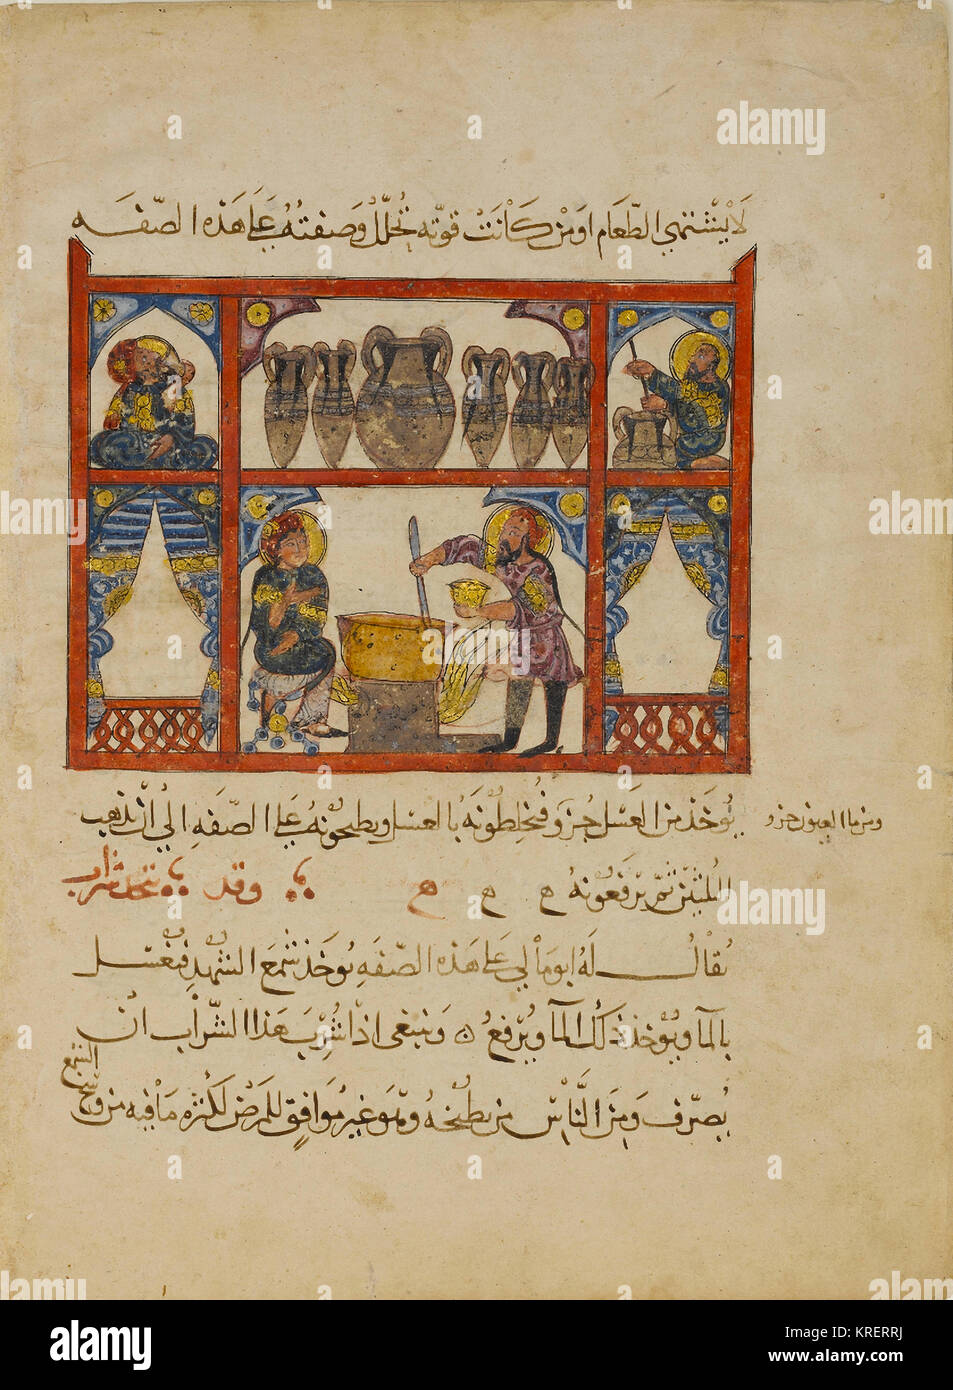 لَا يَشْتَهي الطَّعَام اوَمْن كَانَتْ قوّته تُحَلَّلُ وَصفتُهُ عَلَى هَذه الصّفَه
يُوخَذ من العَسَل جُزو فتخلِطونَهُ بالعسَل ويطبخونهُ عَلَى الصّفَه الي أن يَذهَب
ومن ما العيون جزو
الثلثين ثمّ يرفَعُونهُ ه ه ه وقد يتخذ شراب
يُقَالُ لَهُ ابومَالي عَلى هَذه الصّفَه يُوخَذ شمَع الشهْدِ فيغسَل
بالمآ ويُوخذ ذلك المآ ويُرفعُ وَينبغى اذا شُرِبَ هَذا الشّرَاب انْ
يُصرّف وَمِنَ النَّاسْ من يطبخهُ وهو غير مُوَافق للمرَضى لكثرَه مَا فيه من وسَخ
الشمع
alamy
Image ID: KRERRJ
www.alamy.com